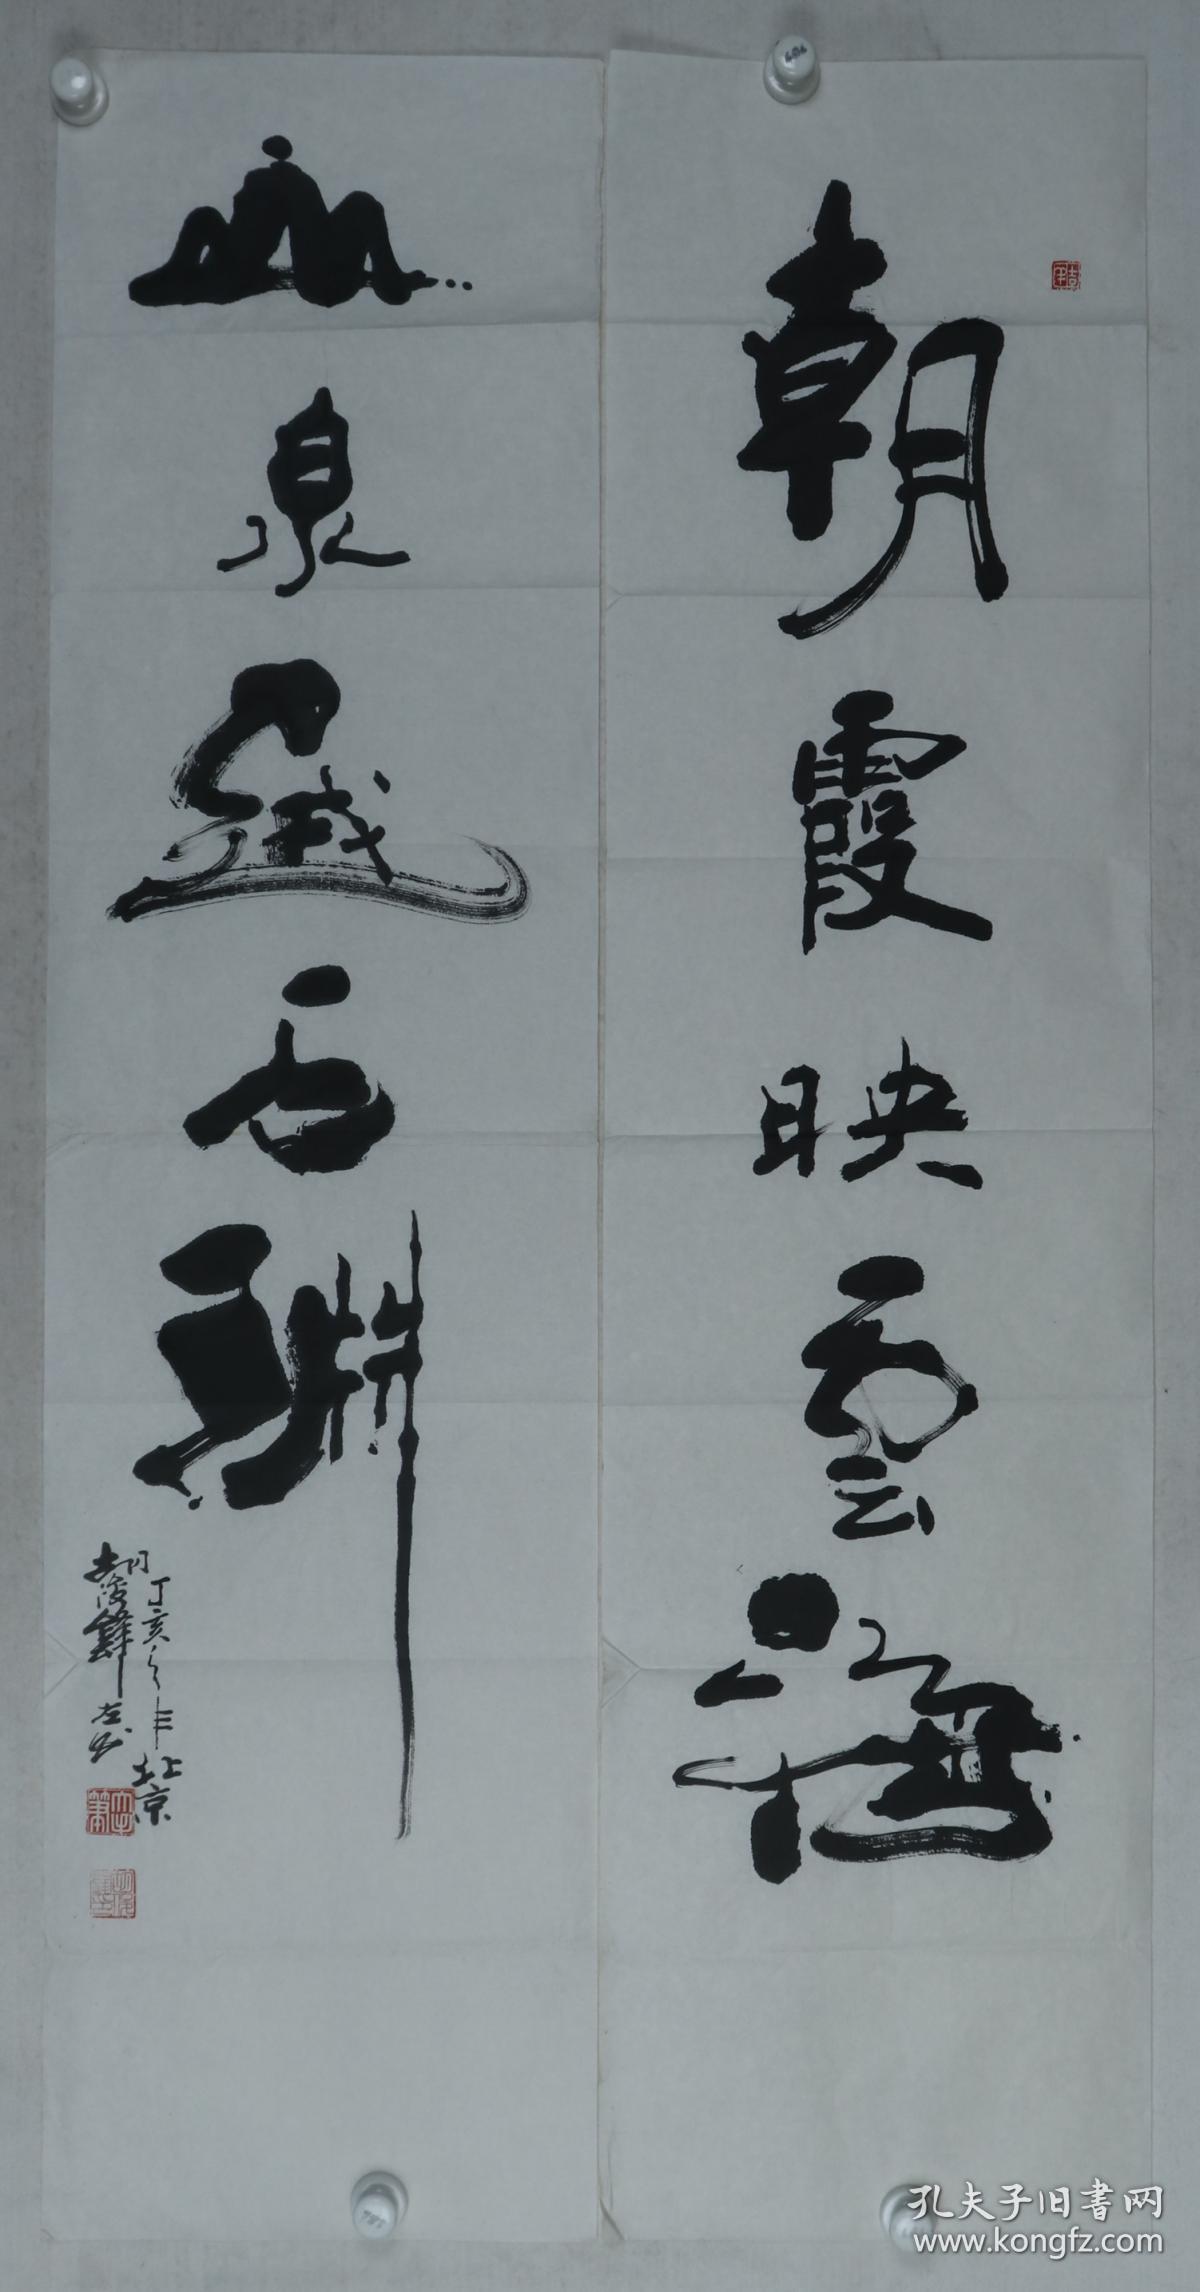 朝霞映雲海
山泉石淵
丁亥年北京
胡鋒左书
孔夫子旧書网
www.kongfz.com